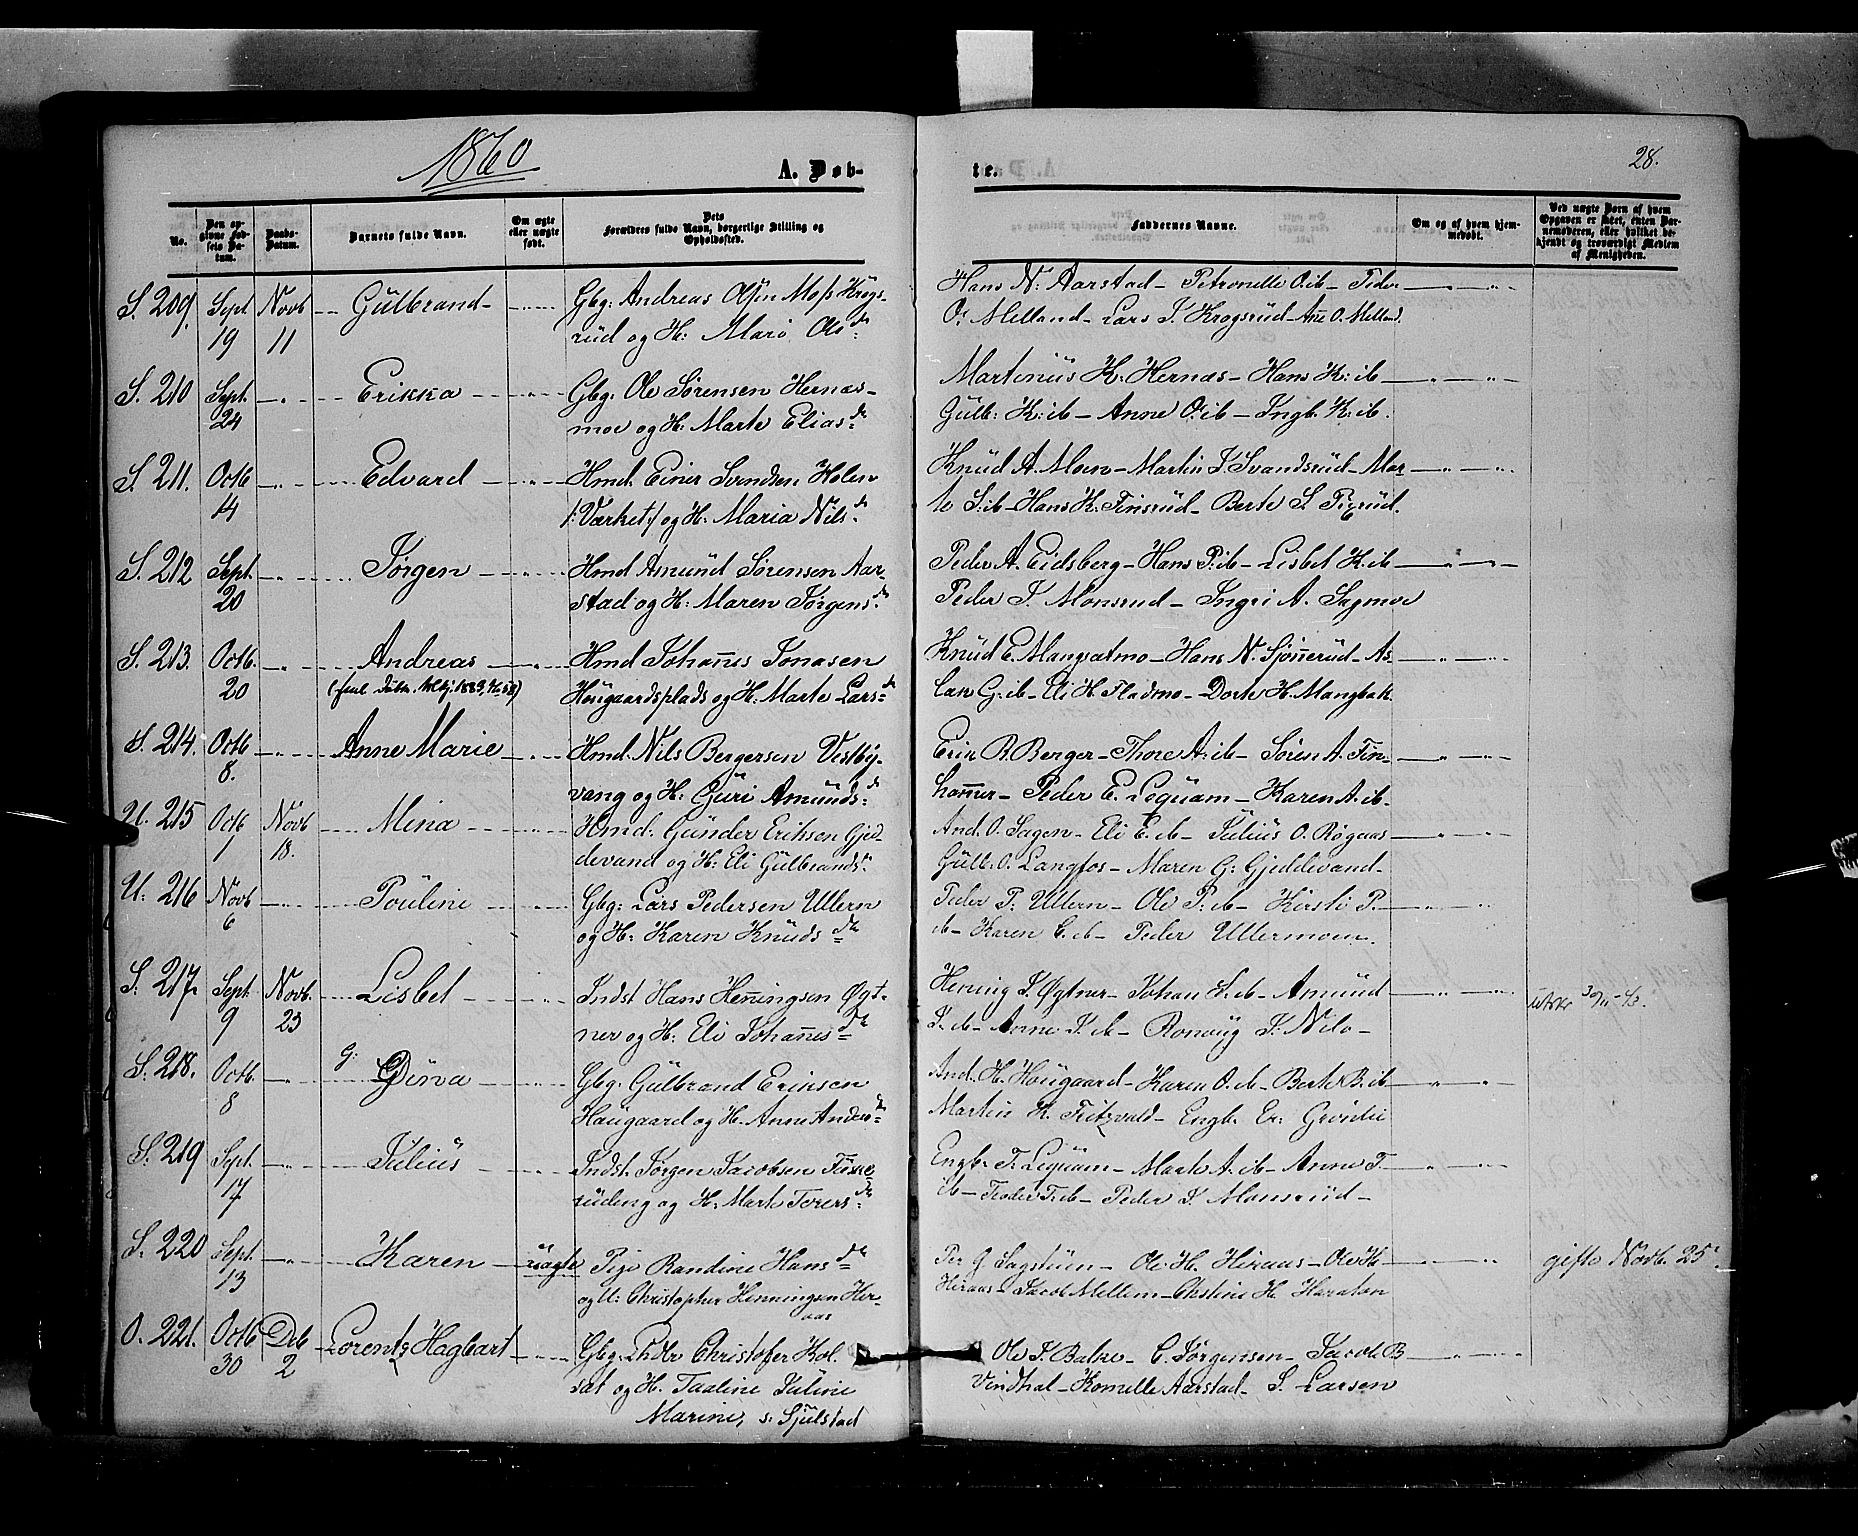 1860
A. Døb-
te.
28.
No.
Den opgivne Fødsels Datum.
Daabs-Datum.
Barnets fulde Navn.
Om ægte eller uægte født.
Dets Forældres fulde Navn, borgerlige Stilling og Opholdssted.
Faddernes Navne.
Om og af hvem hjemmedøbt.
Ved uægte Børn af hvem Opgaven er skeet, enten Barnemoderen, eller hvilket bekjendt og troværdigt Medlem af Menigheden.
S. 209. Sept 19 Novb 11 Gülbrand
Gbg: Andreas Olsen Moss Krogs-
rüd og H: Mari Olsdr
Hans N: Aarstad - Petronelle O. ib - Peder
O. Melland - Lars J. Krogsrüd - Ane O. Melland.
S. 210 Sept. 24 Erikka
Gbg: Ole Sørensen Hernæs-
moe og H: Marte Eliasdr
Martinüs K. Hernæs - Hans K: ib
Gülb: K: ib - Anne O. ib - Ingb. K: ib.
S. 211. Octb 14 Edvard
Hmd. Einer Svendsen Holen
/: Værket :/ og H. Maria Nilsdr
Knüd A. Moen - Martin J. Svandsrüd - Mar-
te S. ib - Hans K. Finsrüd - Berte S.
S. 212 Sept. 20 Jørgen
Hmd Amünd Sørensen Aar-
stad og H: Maren Jørgensdr
Peder A. Eidsberg - Hans P. ib - Lisbet K. ib
Peder J. Monsrud - Ingri A. Sagmoe
S. 213. Octb. 20 Andreas
Hmd Johañes Jonasen
Hougaardsplads og H: Marte Larsdr
Knüd E. Mangsatmo - Hans N. Sjøñerüd - As-
lak G: ib - Eli H. Fladmo - Dorte H. Mangbak
S. 214. Octb 8. Anne Marie
Hmd. Nils Bergersen Vestby-
vang og H: Güri Amündsdr
Erik B. Berger - Thore A: ib - Søren A. Fin-
hañer - Peder E. Leqüam - Karen A. ib
U. 215 Octb 1 Novb 18. Mina
Hmd. Günder Eriksen Gjed-
devand og H: Eli Gülbrandsdr
And. O. Sagen - Eli E. ib - Jülius O. Røgaas
Gülb. O. Langfos - Maren G: Gjeddevand
U. 216 Novb 6 Pouline
Gbg: Lars Pedersen Ullern
og H: Karen Knüdsdr
Peder P. Ullern - Ole P. ib - Kirsti P.
ib - Karen C. ib - Peder Ullermoen.
S. 217. Sept 9 Novb. 23 Lisbet
Indst Hans Heñingsen Øgt-
ner og H: Eli Johañesdr
Hening J. Øgtner - Johan H. ib - Amünd
J. ib - Anne J. ib - Ronaüg J. Nilo
S. 218. Octb. 8 G: Dina
Gbg. Gülbrand Eriksen
Haugaard og H. Anne Andersdr
And. H. Hougaard - Karen O. ib - Berte B. ib
Martin K. Fritzvold - Engb. Er: Grønlie
S. 219 Sept. 17 Jülius
Indst. Jørgen Jacobsen Füske
rüdeng og H: Marte Toresdr
Engb: T. Leqüam - Marte A. ib - Anne T.
ib - Peder T. ib - Peder J. Monsrüd
S. 220 Sept. 13 Karen üægte
Pige Randine Hansdr
og U: Christopher Henningsen Her-
aas
Per G Sagstüen - Ole H. Heraas - Ole K
Heraas - Jacob Mellem - Chstine H. Haraton
gifte Novb. 25.
O. 221. Octb 30 Deb 2 Lorents Hagbart
Gbg. Christofer Kol-
sat og H. Taaline Juline
Marine, s: Sjülstad
Ole J. Balke - C. Jørgensen - Jacob B
Vindhal - Komelle Aarstad - S. Larsen